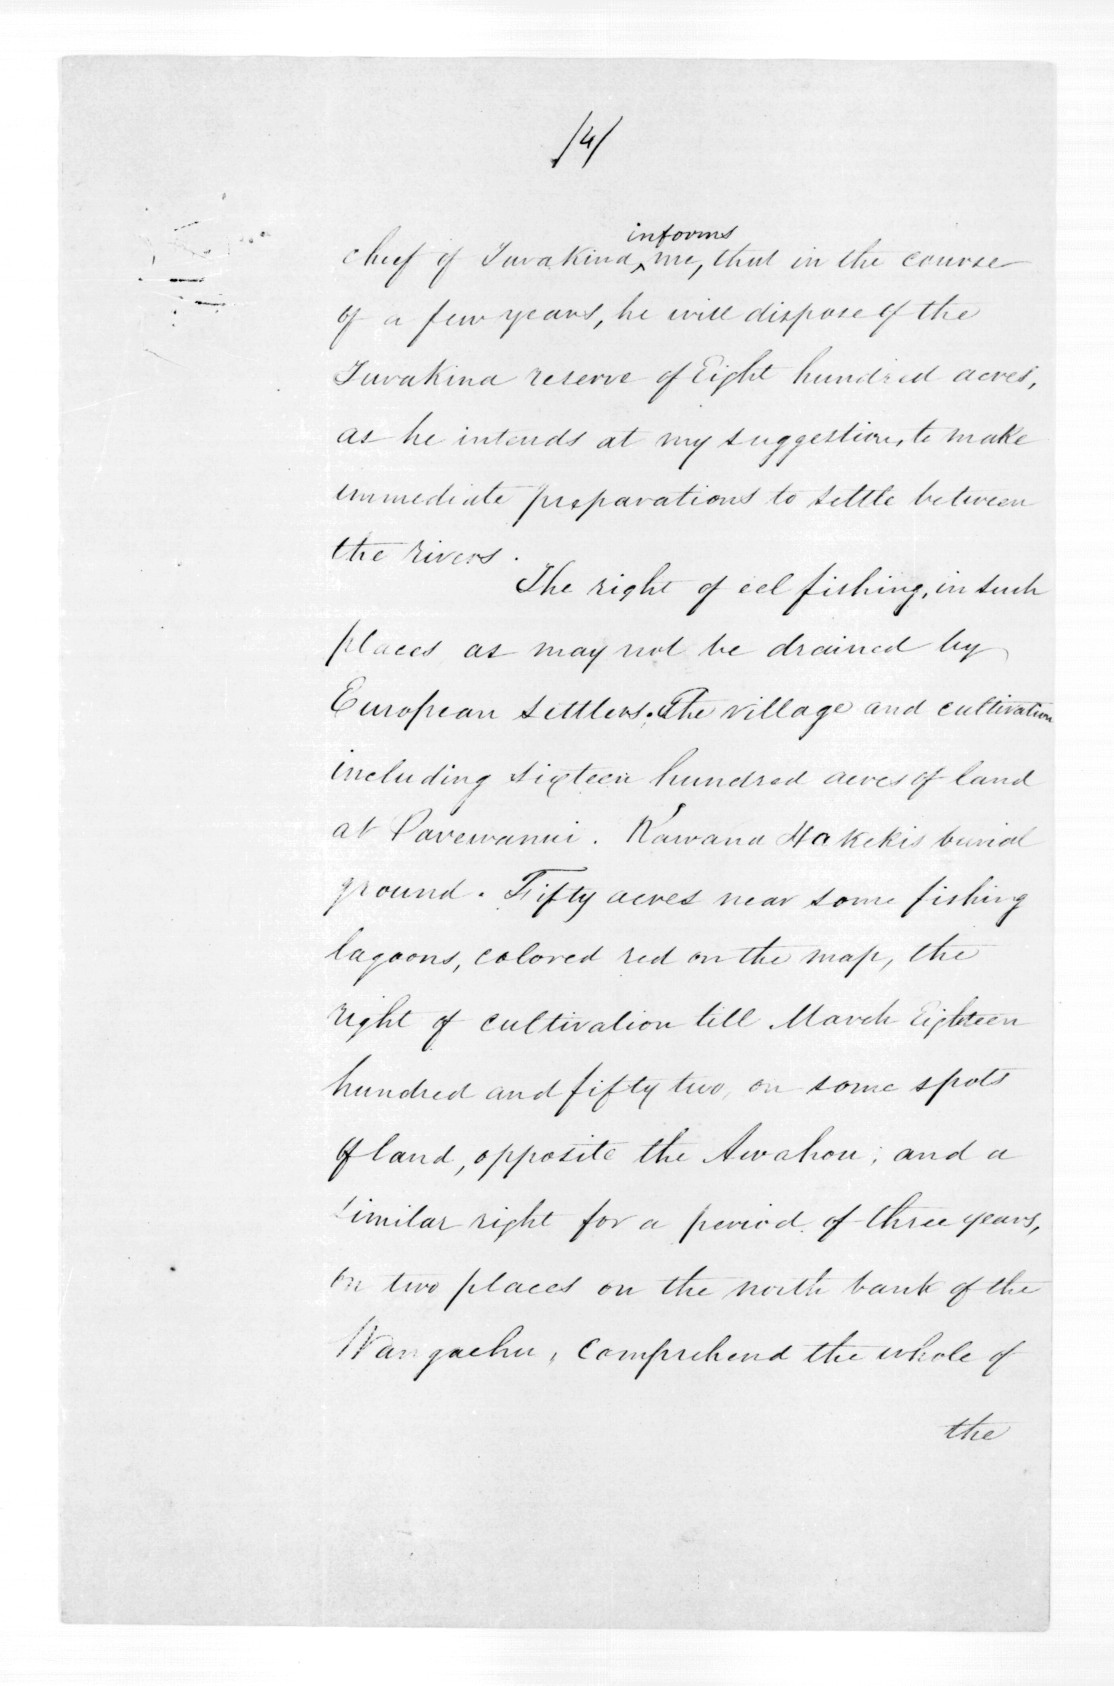 /4/
informs
chief of Turakina, me, that in the course
of a few years, he will dispose of the
Turakina reserve of Eight hundred acres,
as he intends at my suggestion, to make
immediate preparations to settle between
the rivers.
The right of eel fishing, in such
places as may not be drained by
European settlers. The village and cultivation
including sixteen hundred acres of land
at Parewanui. Kawana Hakekis burial
ground. Fifty acres near some fishing
lagoons, colored red on the map, the
right of cultivation till March Eighteen
hundred and fifty two, on some spots
of land, opposite the Awahou; and a
similar right for a period of three years,
on two places on the north bank of the
Wangaehu, comprehend the whole of
the